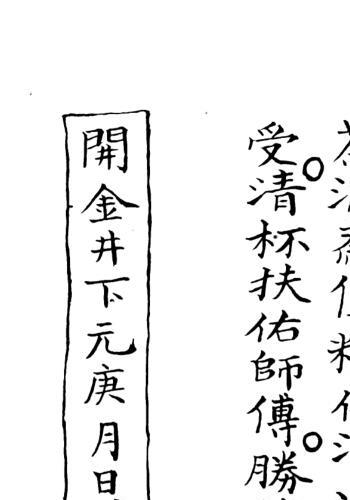 受清杯扶佑師傅勝
開金井下元庚月日